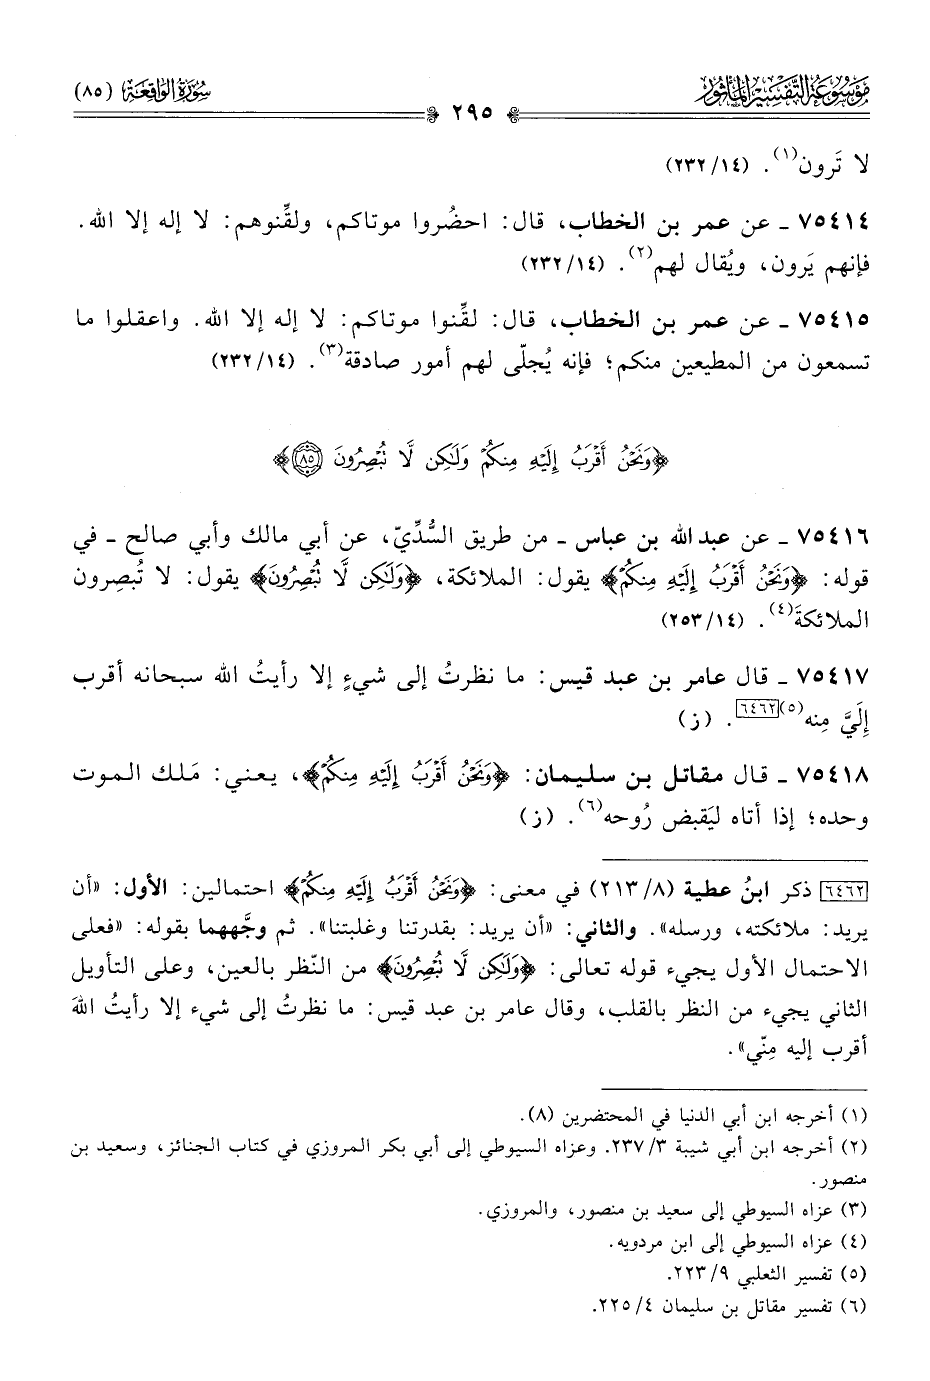 موسوعة التفسير المأثور
سورة الواقعة (٨٥)
٢٩٥
لا تَرون(١). (١٤/ ٢٣٢)
٧٥٤١٤ ـ عن عمر بن الخطاب، قال: احضُروا موتاكم، ولقِّنوهم: لا إله إلا الله.
فإنهم يَرون، ويُقال لهم(٢). (١٤/ ٢٣٢)
٧٥٤١٥ ـ عن عمر بن الخطاب، قال: لقِّنوا موتاكم: لا إله إلا الله. واعقلوا ما
تسمعون من المطيعين منكم؛ فإنه يُجلّى لهم أمور صادقة(٣). (١٤/ ٢٣٢)
﴿وَنَحْنُ أَقْرَبُ إِلَيْهِ مِنكُمْ وَلَٰكِن لَّا تُبْصِرُونَ ٨٥﴾
٧٥٤١٦ ـ عن عبد الله بن عباس ـ من طريق السُّدِّيّ، عن أبي مالك وأبي صالح ـ في
قوله: ﴿وَنَحْنُ أَقْرَبُ إِلَيْهِ مِنكُمْ﴾ يقول: الملائكة، ﴿وَلَٰكِن لَّا تُبْصِرُونَ﴾ يقول: لا تُبصِرون
الملائكةَ(٤). (١٤/ ٢٥٣)
٧٥٤١٧ ـ قال عامر بن عبد قيس: ما نظرتُ إلى شيءٍ إلا رأيتُ الله سبحانه أقرب
إِلَيَّ مِنه(٥)[٦٤٦٢]. (ز)
٧٥٤١٨ ـ قال مقاتل بن سليمان: ﴿وَنَحْنُ أَقْرَبُ إِلَيْهِ مِنكُمْ﴾، يعني: مَلك الموت
وحده؛ إذا أتاه ليَقبض رُوحه(٦). (ز)
[٦٤٦٢] ذكر ابنُ عطية (٨/ ٢١٣) في معنى: ﴿وَنَحْنُ أَقْرَبُ إِلَيْهِ مِنكُمْ﴾ احتمالين: الأول: «أن
يريد: ملائكته، ورسله». والثاني: «أن يريد: بقدرتنا وغلبتنا». ثم وجَّههما بقوله: «فعلى
الاحتمال الأول يجيء قوله تعالى: ﴿وَلَٰكِن لَّا تُبْصِرُونَ﴾ من النّظر بالعين، وعلى التأويل
الثاني يجيء من النظر بالقلب، وقال عامر بن عبد قيس: ما نظرتُ إلى شيء إلا رأيتُ اللهَ
أقرب إليه مِنّي».
(١) أخرجه ابن أبي الدنيا في المحتضرين (٨).
(٢) أخرجه ابن أبي شيبة ٣/ ٢٣٧. وعزاه السيوطي إلى أبي بكر المروزي في كتاب الجنائز، وسعيد بن
منصور.
(٣) عزاه السيوطي إلى سعيد بن منصور، والمروزي.
(٤) عزاه السيوطي إلى ابن مردويه.
(٥) تفسير الثعلبي ٩/ ٢٢٣.
(٦) تفسير مقاتل بن سليمان ٤/ ٢٢٥.